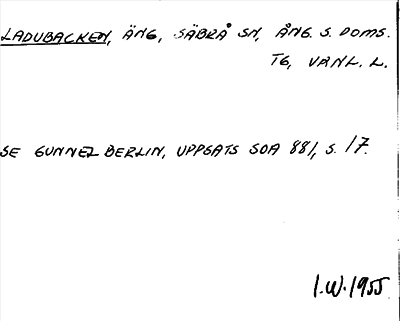 LADUBACKEN, ÄNG, SÄBRÅ SN, ÅNG. S. DOMS.
TG, VANL. L.
SE GUNNEL BERLIN, UPPSATS SOA 881, S. 17.
I.W. 1955